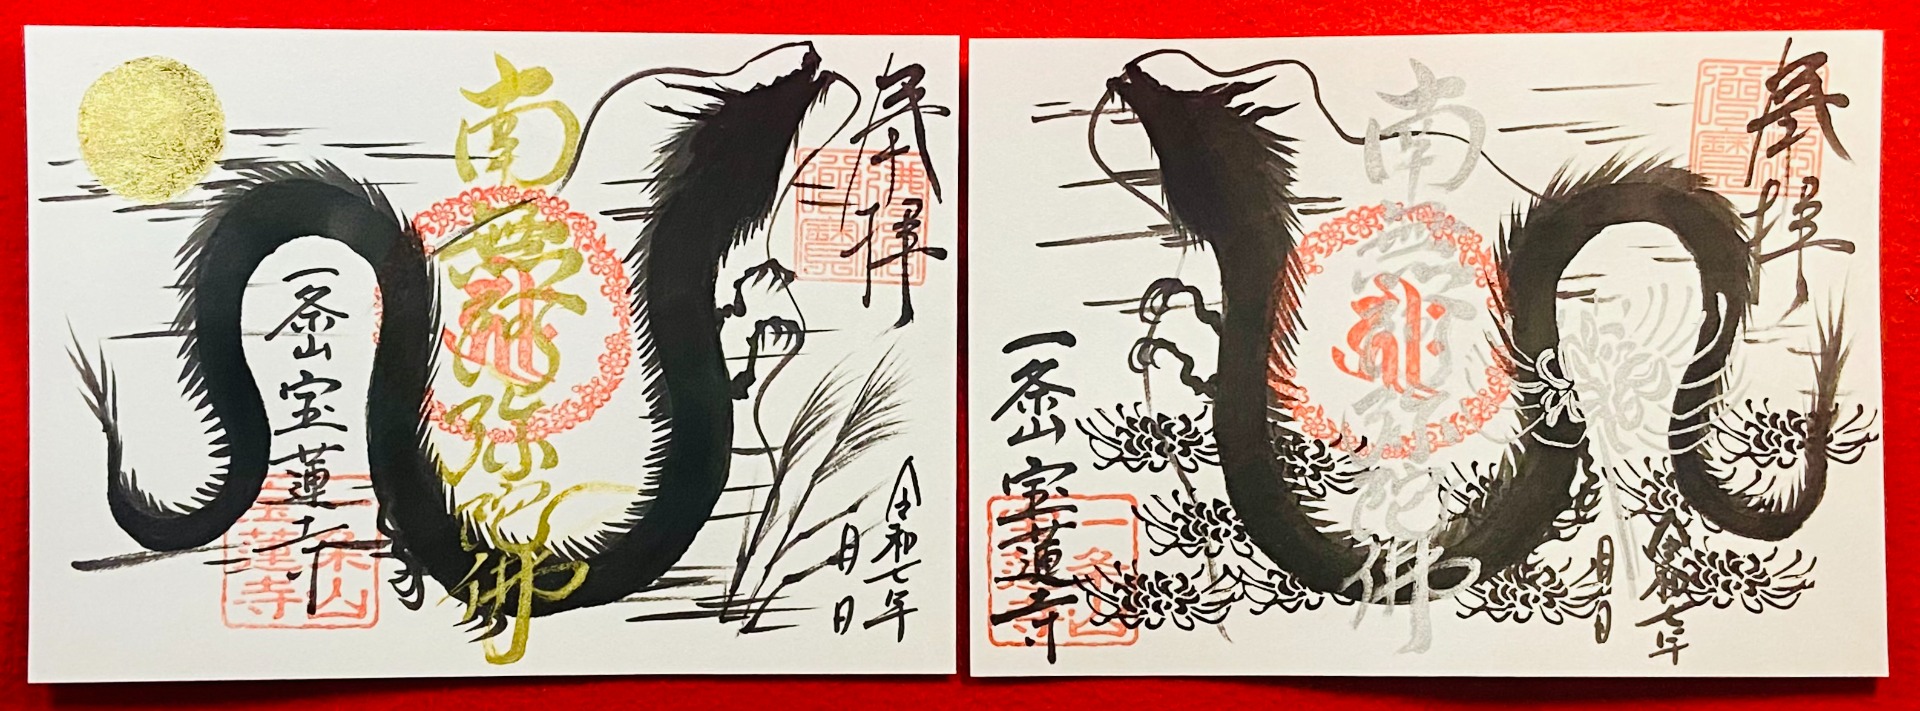 奉拝
佛法僧寶
南無阿弥陀佛
一条山宝蓮寺
一条山
宝蓮寺
令和七年
月 日
奉拝
佛法僧寶
南無阿弥陀佛
一条山宝蓮寺
一条山
宝蓮寺
令和七年
月 日